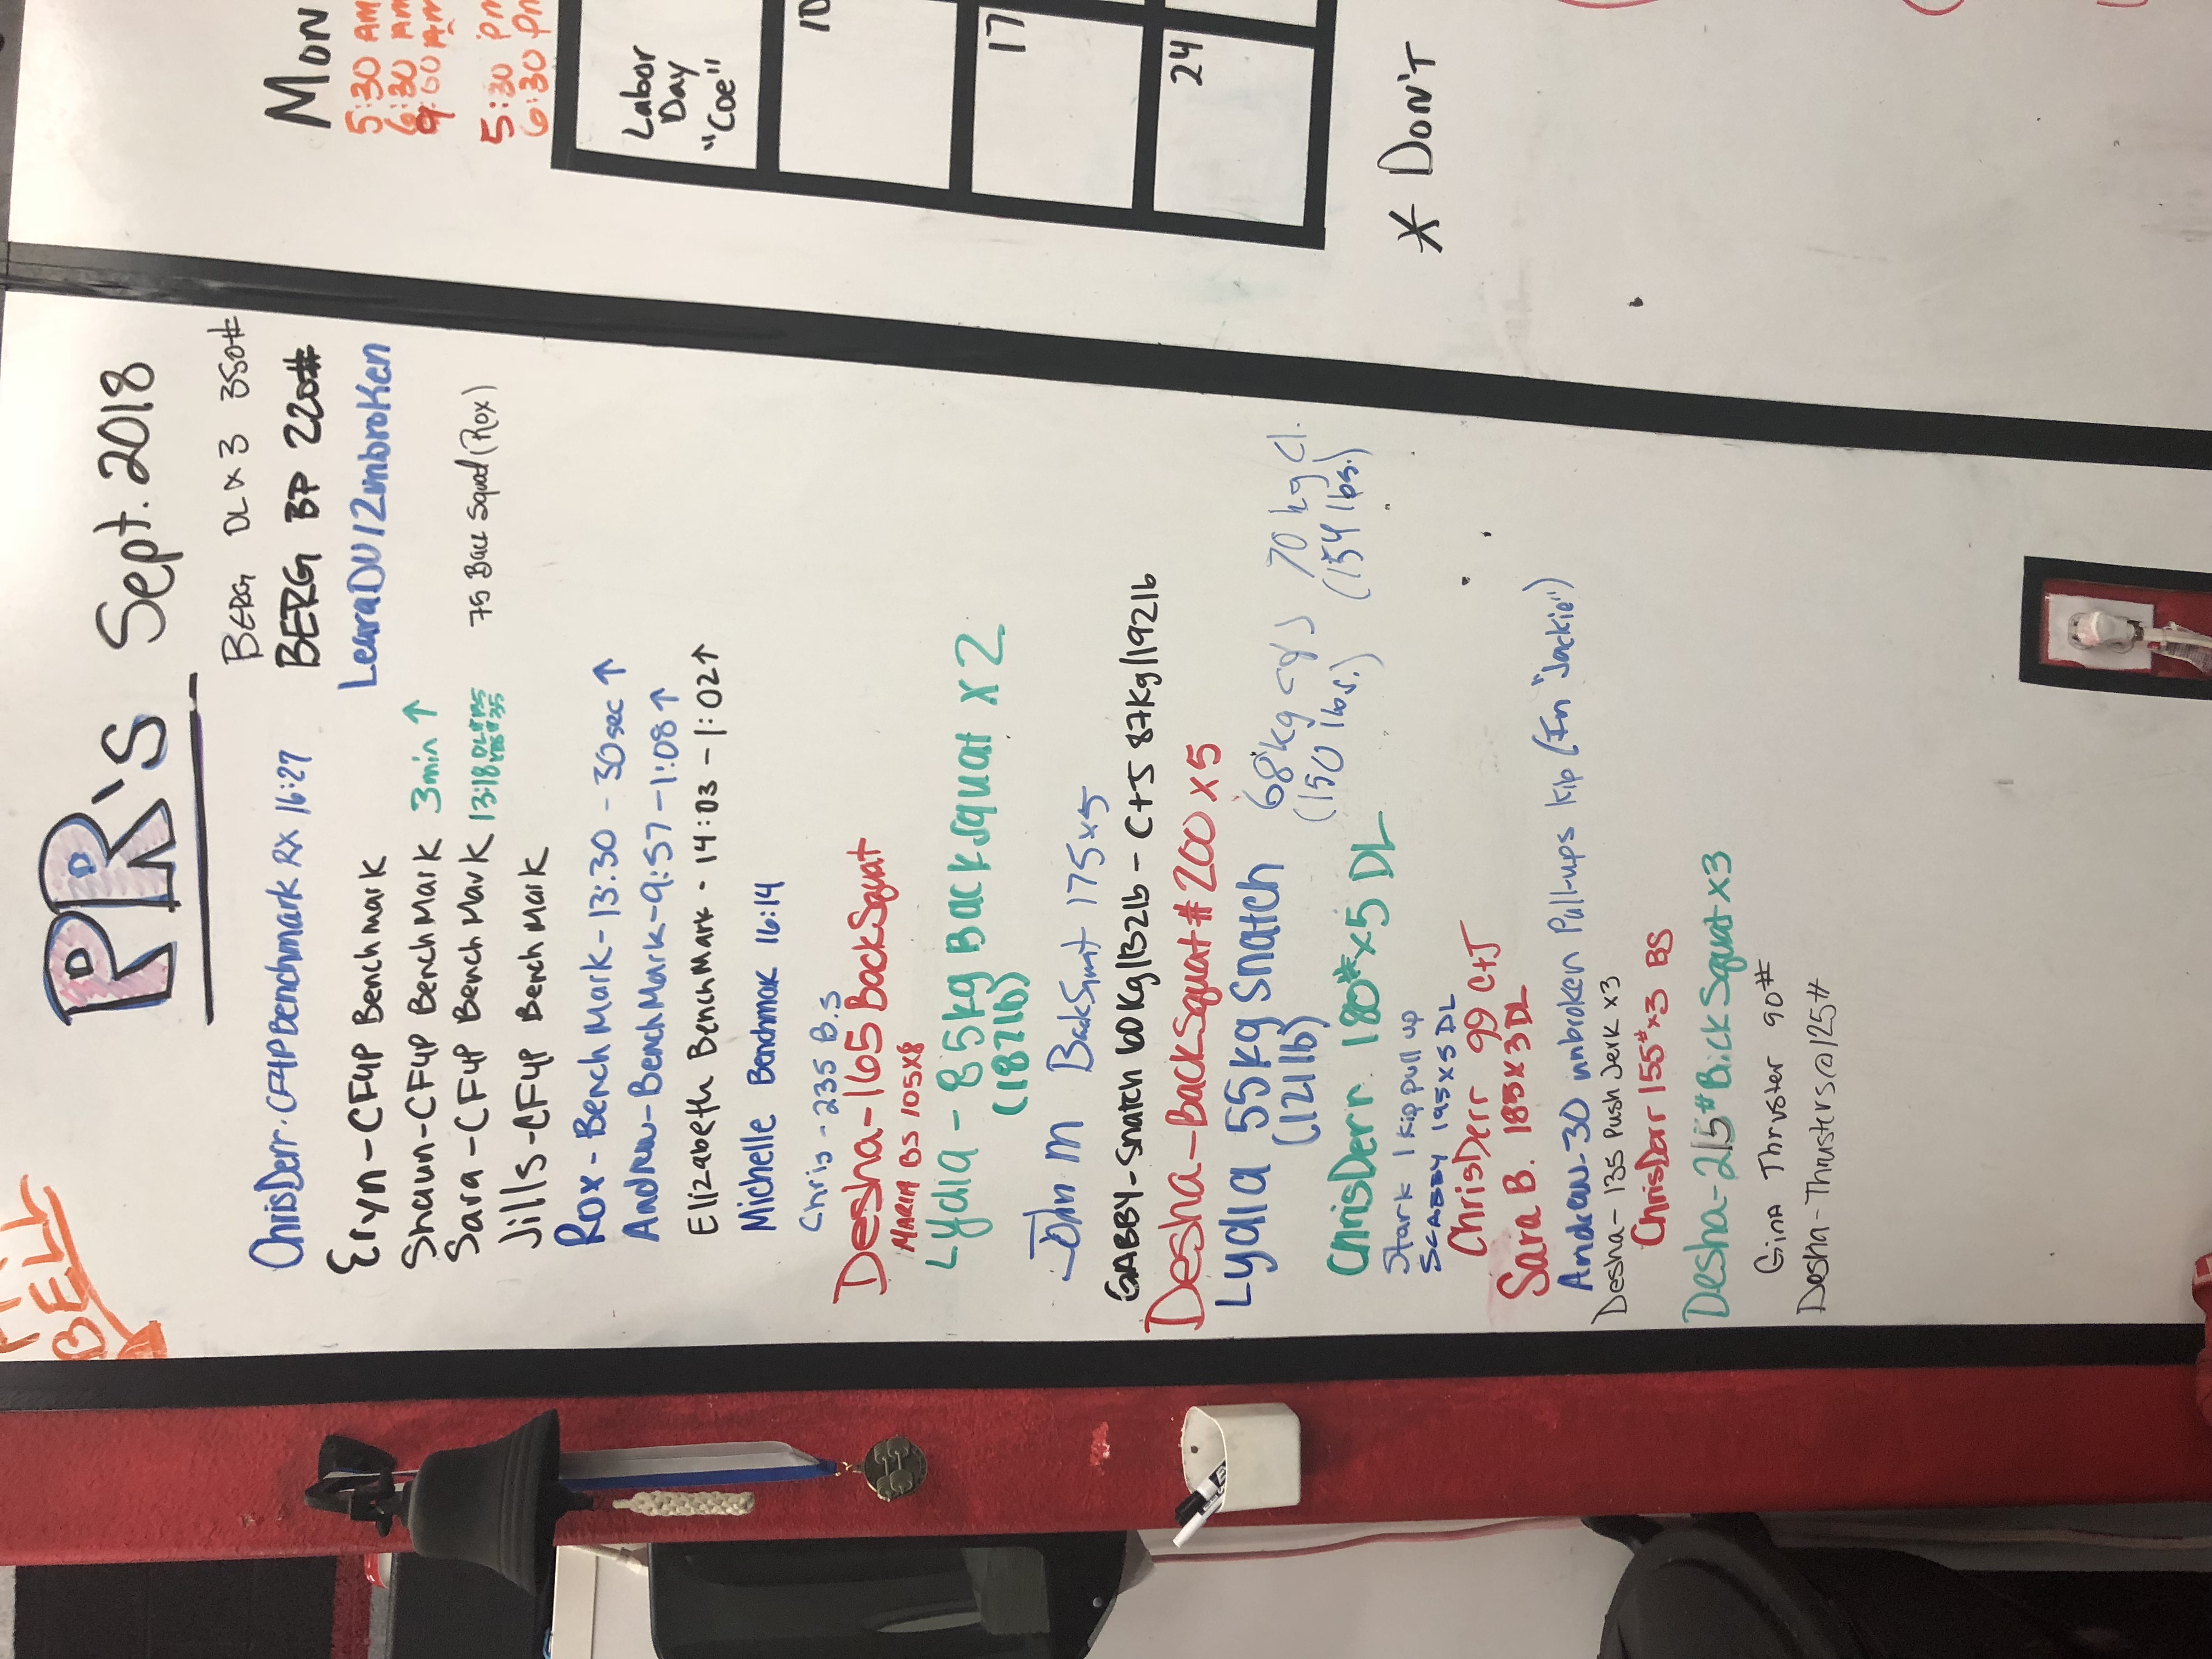 BELL
PR's Sept. 2018
ChrisDerr-CF4PBenchmark Rx 16:27
Eryn-CF4P Benchmark
Shaun-CF4P BenchMark 3min ↑
Sara-CF4P BenchMark 13:18
Jills-CF4P BenchMark
Rox-BenchMark-13:30-30sec ↑
Andrew-BenchMark-9:57-1:08 ↑
Elizabeth BenchMark-14:03-1:02↑
Michelle Benchmak 16:14
Chris-235 B.S
Desha-165 BackSquat
MARIA BS 105X8
Lydia-85kg Back squat x 2
(187lb)
John M 175x5
GABBY-Snatch 60Kg|132lb-C+J 87Kg|192lb
Desha-BackSquat#200x5
Lydia 55kg Snatch 68kg C+J 70 kg Cl.
(121 lb) (150 lbs.) (154 lbs.)
ChrisDerr 180#x5 DL
Stark 1 kip pull up
SCABBY 195x5 DL
ChrisDerr 99 C+J
Sara B. 185x3DL
Andrew-30 unbroken Pull-ups kip (In "Jackie")
Desha-135 Push Jerk x3
ChrisDerr 155#x3 BS
Desha-215# Back Squat x3
Gina Thruster 90#
Desha-Thrusters@125#
BERG DL x 3 350#
BERG BP 220#
LearaDU12unbroken
75 Ball Squad (Rox)
MON
5:30 AM
6:30 AM
9:00 AM
5:30 PM
6:30 PM
Labor
Day
"Coe"
10
17
24
* DON'T